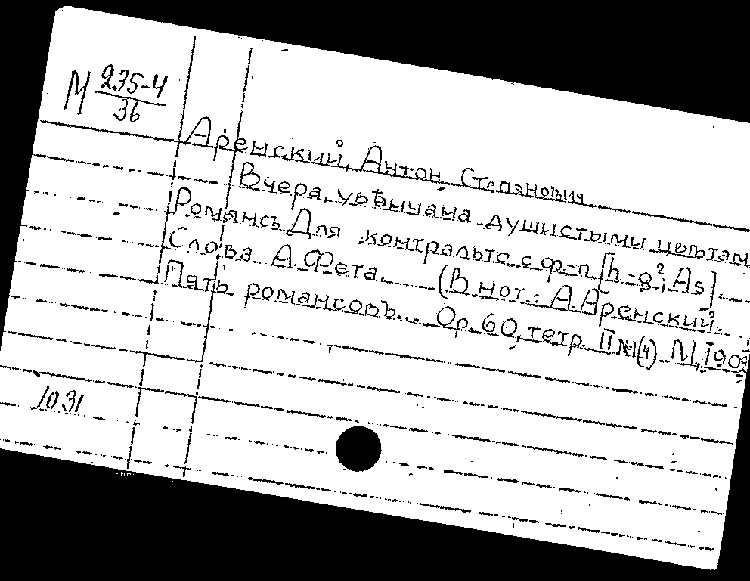 М 235-4
36
Аренский, Антон Степанович
Вчера, увѣнчана душистыми цвѣтам
Романсъ Для контральто с ф-п [h-g²; As]
Слова А. Фета. (В нот.: А. Аренский.
Пять романсовъ... Op. 60, тетр. II №1(4) М., 1903
1031